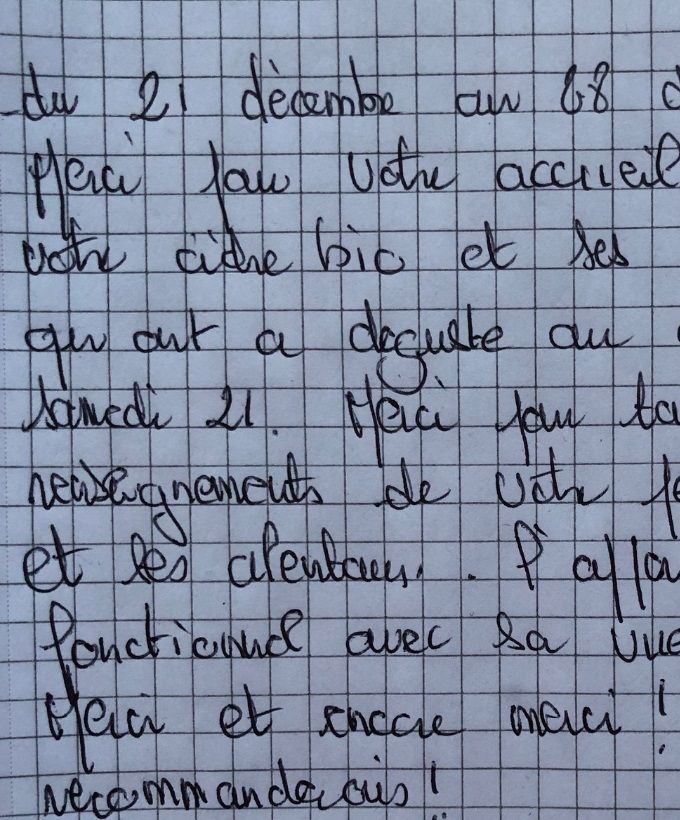 du 21 décembre au 28 d
Merci pour votre accueil
votre cidre bio et ses
qu'ont a deguste au
samedi 21. Merci pour
renseignements de votre
et les alentours. l'appa
fonctionnel avec sa vue
Merci et encore merci !
recommanderons !